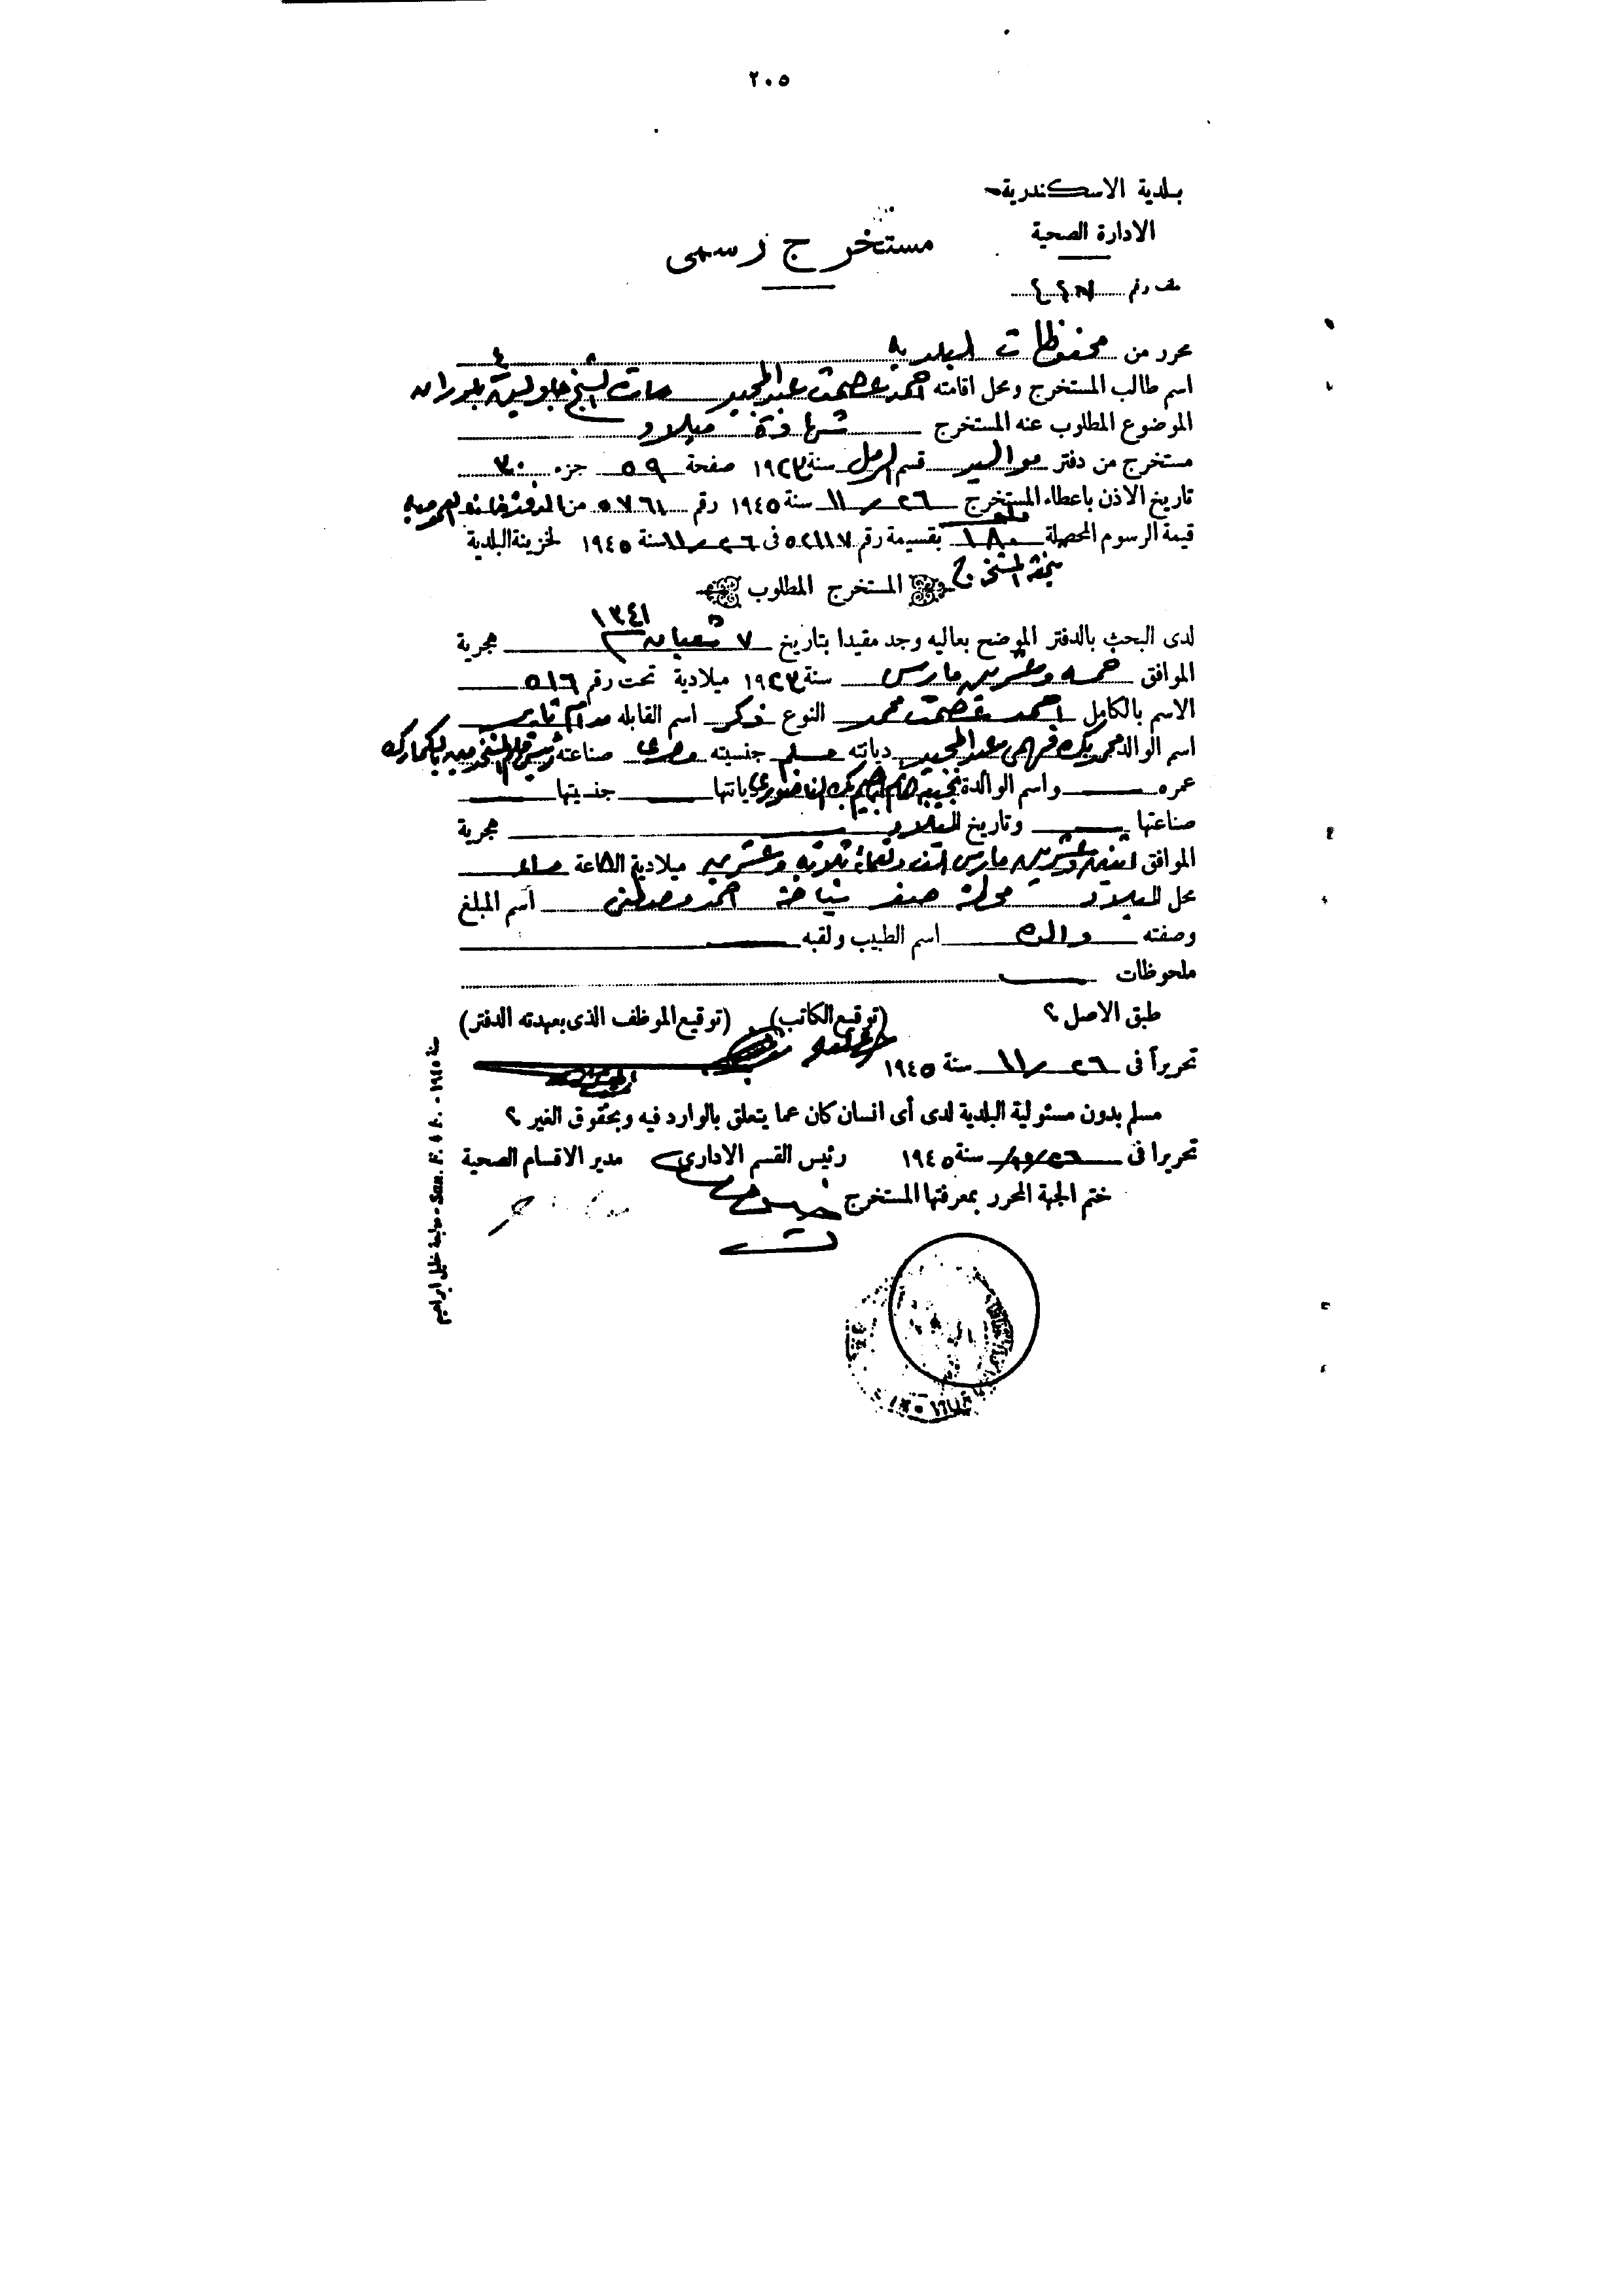 ٢٠٥
بلدية الاسكندرية
الادارة الصحية
مستخرج رسمى
ملف رقم
محرر من محفوظات البلدية
اسم طالب المستخرج ومحل اقامته احمد عصمت عبد المجيد
الموضوع المطلوب عنه المستخرج شهادة ميلاد
مستخرج من دفتر مواليد قسم الرمل سنة ١٩٢٣ صفحة ٥٩ جزء ٣٠
تاريخ الاذن باعطاء المستخرج ٢٦ / ١١ سنة ١٩٤٥ رقم ٥٧٦١ من الدفتر
قيمة الرسوم المحصلة ١٨٠ بقسيمة رقم ٥٢١١٧ فى ٢٦ / ١١ سنة ١٩٤٥ لخزينة البلدية
المستخرج المطلوب
لدى البحث بالدفتر الموضح بعاليه وجد مقيدا بتاريخ ٧ شعبان ١٣٤١ هجرية
الموافق خمسه وعشرين مارس سنة ١٩٢٣ ميلادية تحت رقم ٥١٦
الاسم بالكامل احمد عصمت محمد النوع ذكر اسم القابله مدام
اسم الوالد محمد بك فهمى عبد المجيد ديانته مسلم جنسيته مصرى صناعته
عمره واسم الوالدة ديانتها جنسيتها
صناعتها وتاريخ الميلاد هجرية
الموافق اثنين وعشرين مارس الف وتسعمائة ثلاثة وعشرين ميلادية الساعة
محل الميلاد محطة صفر شياخة احمد مصطفى اسم المبلغ
وصفته والده اسم الطبيب ولقبه
ملحوظات
طبق الاصل ؟ (توقيع الكاتب) (توقيع الموظف الذى بعهدته الدفتر)
تحريراً فى ٢٦ / ١١ سنة ١٩٤٥
مسلم بدون مسئولية البلدية لدى أى انسان كان عما يتعلق بالوارد فيه وبحقوق الغير ؟
تحريرا فى ٢٦ / ١١ سنة ١٩٤٥ رئيس القسم الادارى مدير الاقسام الصحية
ختم الجهة المحرر بمعرفتها المستخرج